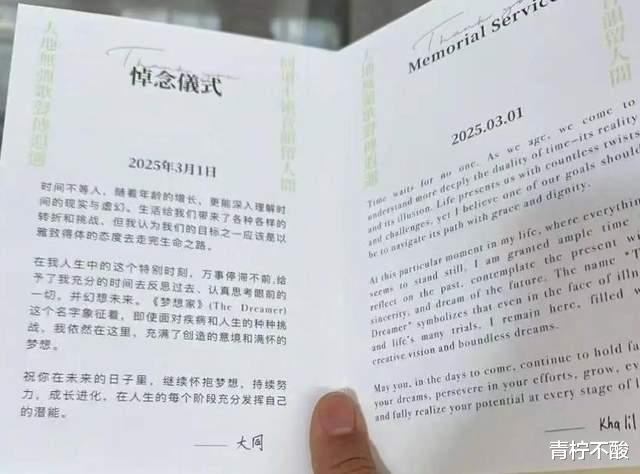 大地無疆歌聲傳遐邇
Thank you
悼念儀式
音韻留人間
2025年3月1日
时间不等人，随着年龄的增长，更能深入理解时
间的现实与虚幻。生活给我们带来了各种各样的
转折和挑战，但我认为我们的目标之一应该是以
雅致得体的态度去走完生命之路。
在我人生中的这个特别时刻，万事停滞不前，给
予了我充分的时间去反思过去、认真思考眼前的
一切，并幻想未来。《梦想家》(The Dreamer)
这个名字象征着，即使面对疾病和人生的种种挑
战，我依然在这里，充满了创造的意境和满怀的
梦想。
祝你在未来的日子里，继续怀抱梦想，持续努
力，成长进化，在人生的每个阶段充分发挥自己
的潜能。
—— 大同
大地無疆歌聲傳遐邇
Thank you
Memorial Service
音韻留人間
2025.03.01
Time waits for no one. As we age, we come to
understand more deeply the duality of time—its reality
and its illusion. Life presents us with countless twists
and challenges, yet I believe one of our goals should
be to navigate its path with grace and dignity.
At this particular moment in my life, where everything
seems to stand still, I am granted ample time
reflect on the past, contemplate the present wi
sincerity, and dream of the future. The name "T
Dreamer" symbolizes that even in the face of illn
and life's many trials, I remain here, filled w
creative vision and boundless dreams.
May you, in the days to come, continue to hold fa
your dreams, persevere in your efforts, grow, ev
and fully realize your potential at every stage of l
—— Khalil
青柠不酸